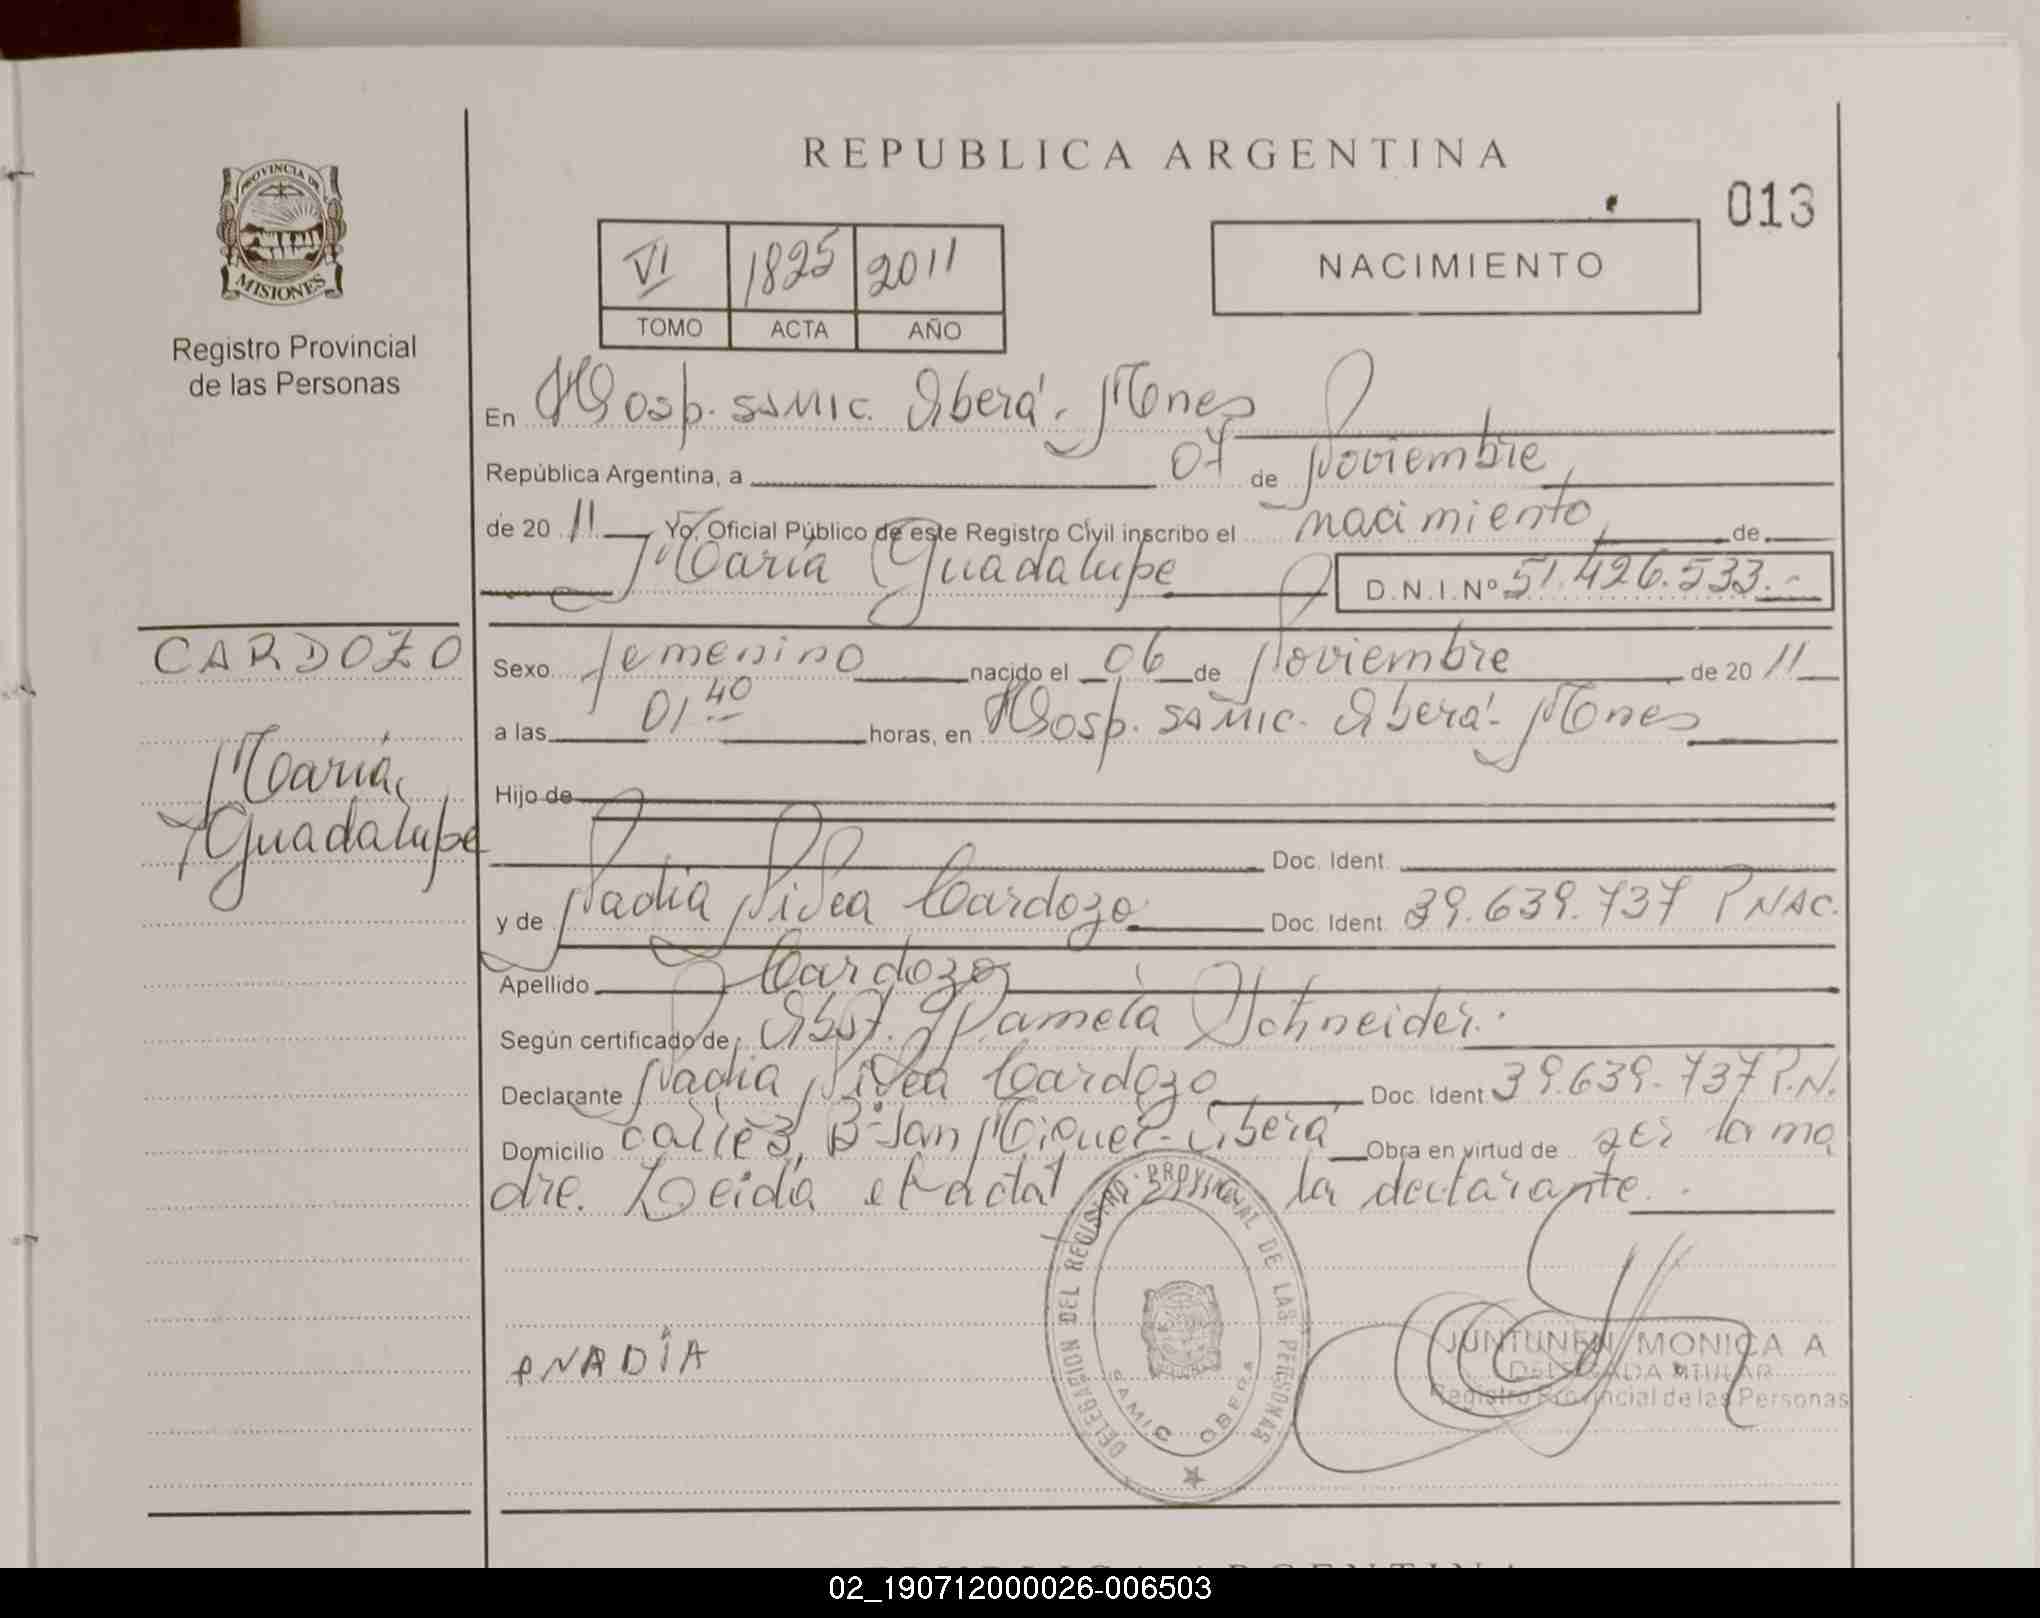 REPUBLICA ARGENTINA
013
PROVINCIA DE
MISIONES
Registro Provincial
de las Personas
VI 1825 2011
TOMO ACTA AÑO
NACIMIENTO
En Hosp. SAMIC. Oberá - Mnes
República Argentina, a 07 de Noviembre,
de 20 11 Yo, Oficial Público de este Registro Civil inscribo el nacimiento, de
María Guadalupe D.N.I.Nº 51.426.533.-
CARDOZO
María
Guadalupe
Sexo femenino nacido el 06 de Noviembre de 20 11
a las 01 40 horas, en Hosp. SAMIC. Oberá - Mnes
Hijo de
Doc. Ident.
y de Nadia Cardozo Doc. Ident. 39.639.737 P NAC.
Apellido Cardozo
Según certificado de Obst. Pamela Schneider.
Declarante Nadia Cardozo Doc. Ident 39.639.737 P.N.
Domicilio calle 3, Bº San Miguel - Oberá Obra en virtud de ser la ma
dre. Leida el acta la declarante.
DELEGACION DEL REGISTRO PROVINCIAL DE LAS PERSONAS
SAMIC OBERA
NADIA
JUNTUNEN MONICA A
DELEGADA TITULAR
Registro Provincial de las Personas
02_190712000026-006503